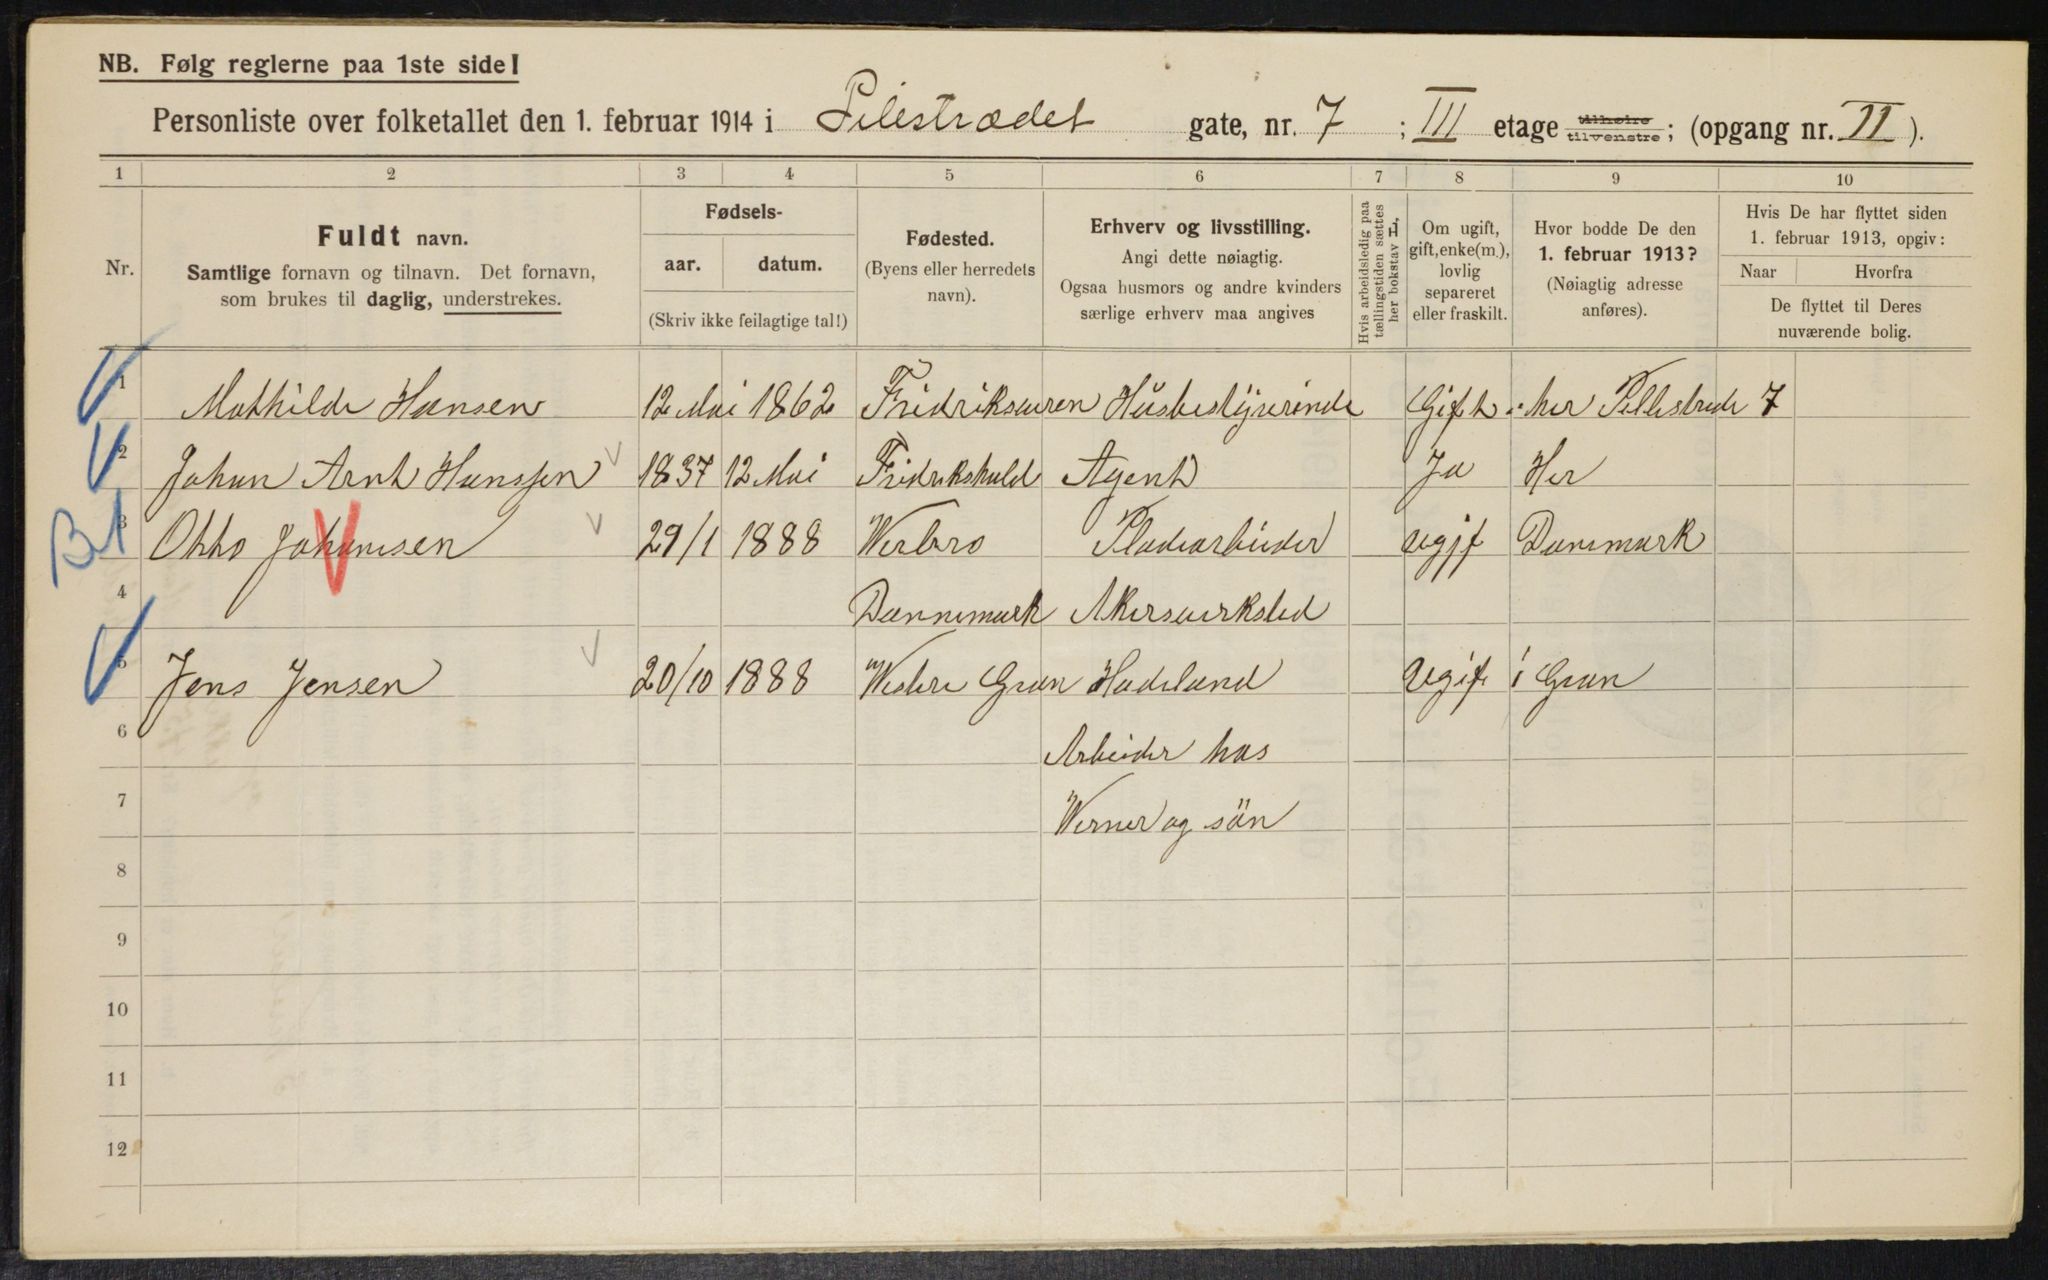 NB. Følg reglerne paa 1ste side!
Personliste over folketallet den 1. februar 1914 i Pilestrædet gate, nr. 7 ; III etage tilhøire tilvenstre ; (opgang nr. II ).
1 2 3 4 5 6 7 8 9 10
Nr.
Fuldt navn.
Samtlige fornavn og tilnavn. Det fornavn,
som brukes til daglig, understrekes.
Fødsels-
aar. datum.
(Skriv ikke feilagtige tal!)
Fødested.
(Byens eller herredets
navn).
Erhverv og livsstilling.
Angi dette nøiagtig.
Ogsaa husmors og andre kvinders
særlige erhverv maa angives
Hvis arbeidsledig paa
tællingstiden sættes
her bokstav L,
Om ugift,
gift, enke(m.),
lovlig
separeret
eller fraskilt.
Hvor bodde De den
1. februar 1913?
(Nøiagtig adresse
anføres).
Hvis De har flyttet siden
1. februar 1913, opgiv:
Naar Hvorfra
De flyttet til Deres
nuværende bolig.
1 Mathilde Hansen 12 Mai 1862 Fridriksværen Husbestyrerinde Gift her Pillestrede 7
2 Johan Arnt Hanssen 1837 12 Mai Fridrikshald Agent Ja Her
3 Otto Johannsen 29/1 1888 Pladearbeider ugif Danemark
4 Dannemark Akersverksted
5 Jens Jensen 20/10 1888 Vestre Gran Hadeland Ugif i Gran
6 Arbeider hos
7 Werner og sön
8
9
10
11
12